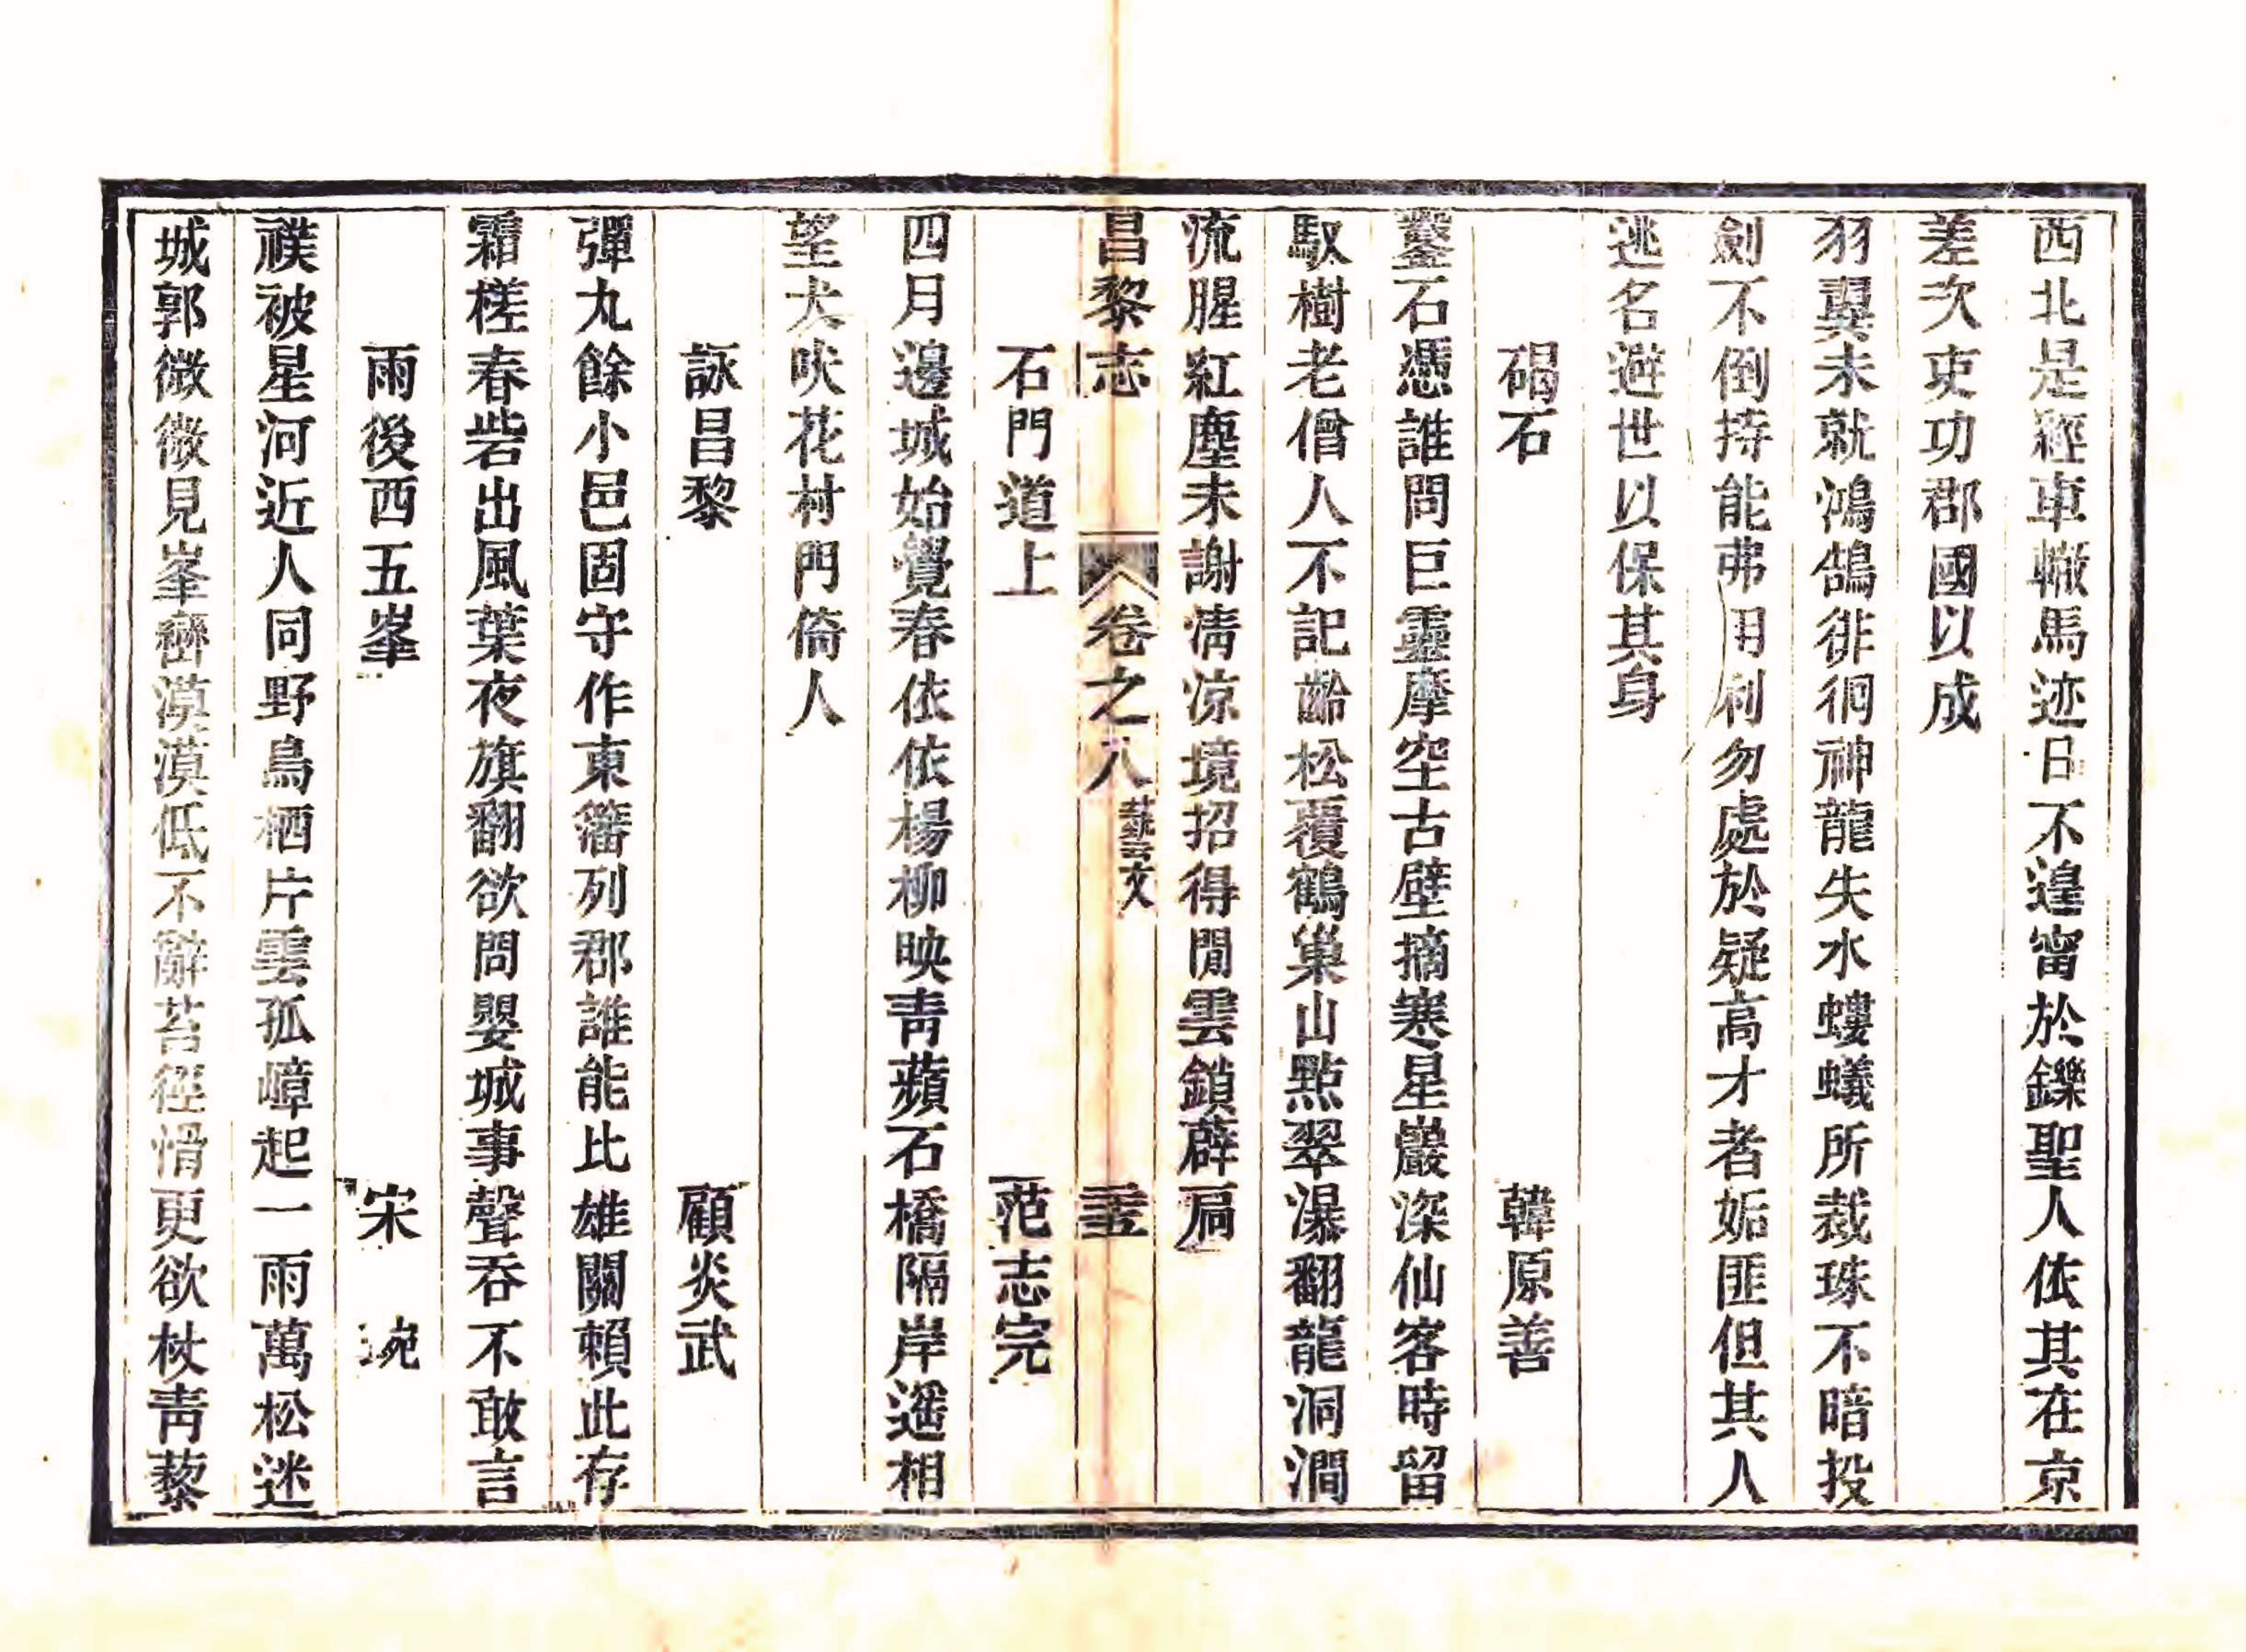 西北是經車轍馬迹日不遑甯於鑠聖人依其在京
差次吏功郡國以成
羽翼未就鴻鵠徘徊神龍失水螻蟻所裁珠不暗投
劍不倒持能弗用利勿處於疑高才者妬匪但其人
逃名避世以保其身
碣石 韓原善
鑿石憑誰問巨靈摩空古壁摘寒星巖深仙客時留
馭樹老僧人不記齡松覆鶴巢山點翠瀑翻龍洞澗
流腥紅塵未謝淸凉境招得閒雲鎖薜扃
昌黎志 卷之八 藝文
石門道上 范志完
四月邊城始覺春依依楊柳映靑蘋石橋隔岸遥相
望犬吠花村門倚人
詠昌黎 顧炎武
彈丸餘小邑固守作東籓列郡誰能比雄關賴此存
霜槎春砦出風葉夜旗翻欲問嬰城事聲吞不敢言
雨後西五峯 宋琬
襆被星河近人同野鳥栖片雲孤嶂起一雨萬松迷
城郭微微見峯巒漠漠低不辭苔徑滑更欲杖靑藜